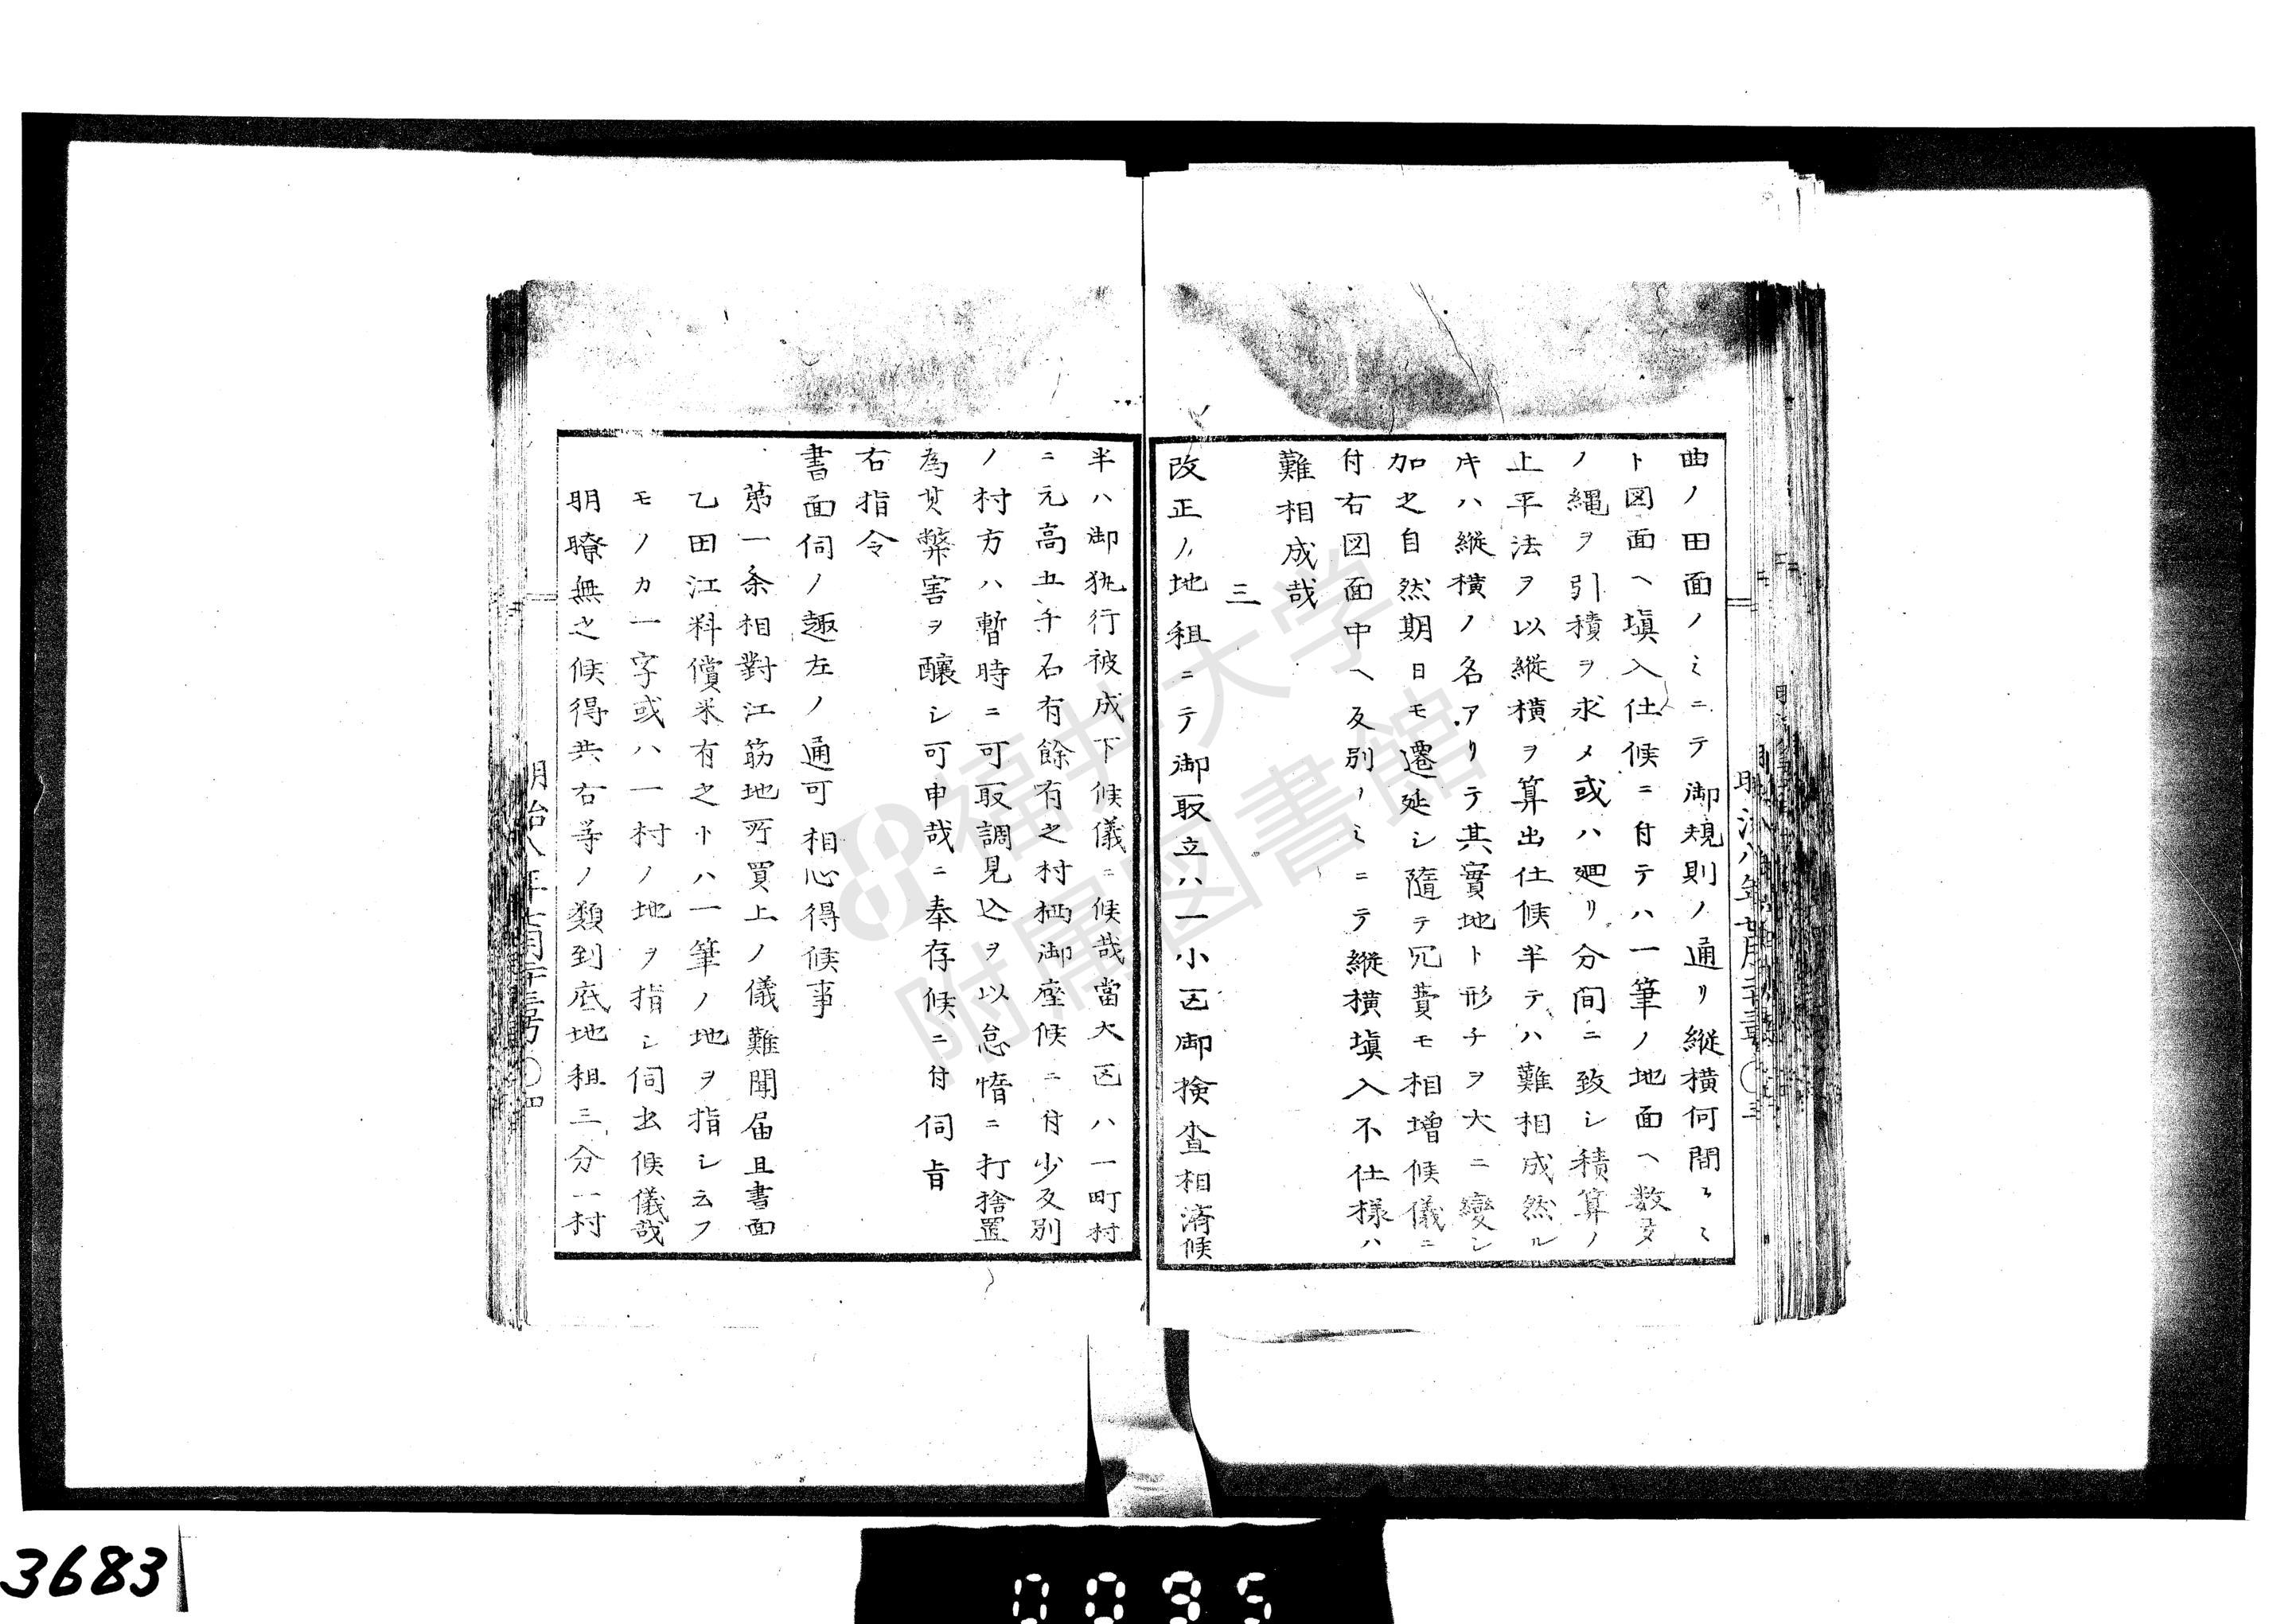 曲ノ田面ノミニテ御規則ノ通リ縦横何間〻〻
ト図面ヘ塡入仕候ニ付テハ一筆ノ地面ヘ数多
ノ縄ヲ引積ヲ求メ或ハ廻リ分間ニ致シ積算ノ
上平法ヲ以縦横ヲ算出仕候半テハ難相成然ル
キハ縦横ノ名アリテ其實地ト形チヲ大ニ變シ
加之自然期日モ遷延シ隨テ冗費モ相増候儀ニ
付右図面中ヘ反別ノミニテ縦横塡入不仕様ハ
難相成哉
三
改正ノ地租ニテ御取立ハ一小区御検査相済候
明治八年七月二十三号〇三
半ハ御执行被成下候儀ニ候哉當大区ハ一町村
ニ元高五千石有餘有之村柄御座候ニ付少反別
ノ村方ハ暫時ニ可取調見込ヲ以怠惰ニ打捨置
為其弊害ヲ釀シ可申哉ニ奉存候ニ付伺旨
右指令
書面伺ノ趣左ノ通可相心得候事
第一条相對江筋地所買上ノ儀難聞届且書面
乙田江料償米有之トハ一筆ノ地ヲ指シ云フ
モノカ一字或ハ一村ノ地ヲ指シ伺出候儀哉
明瞭無之候得共右等ノ類到底地租三分一村
明治八年七月二十三号〇四
福井大学
附属図書館
3683
0095